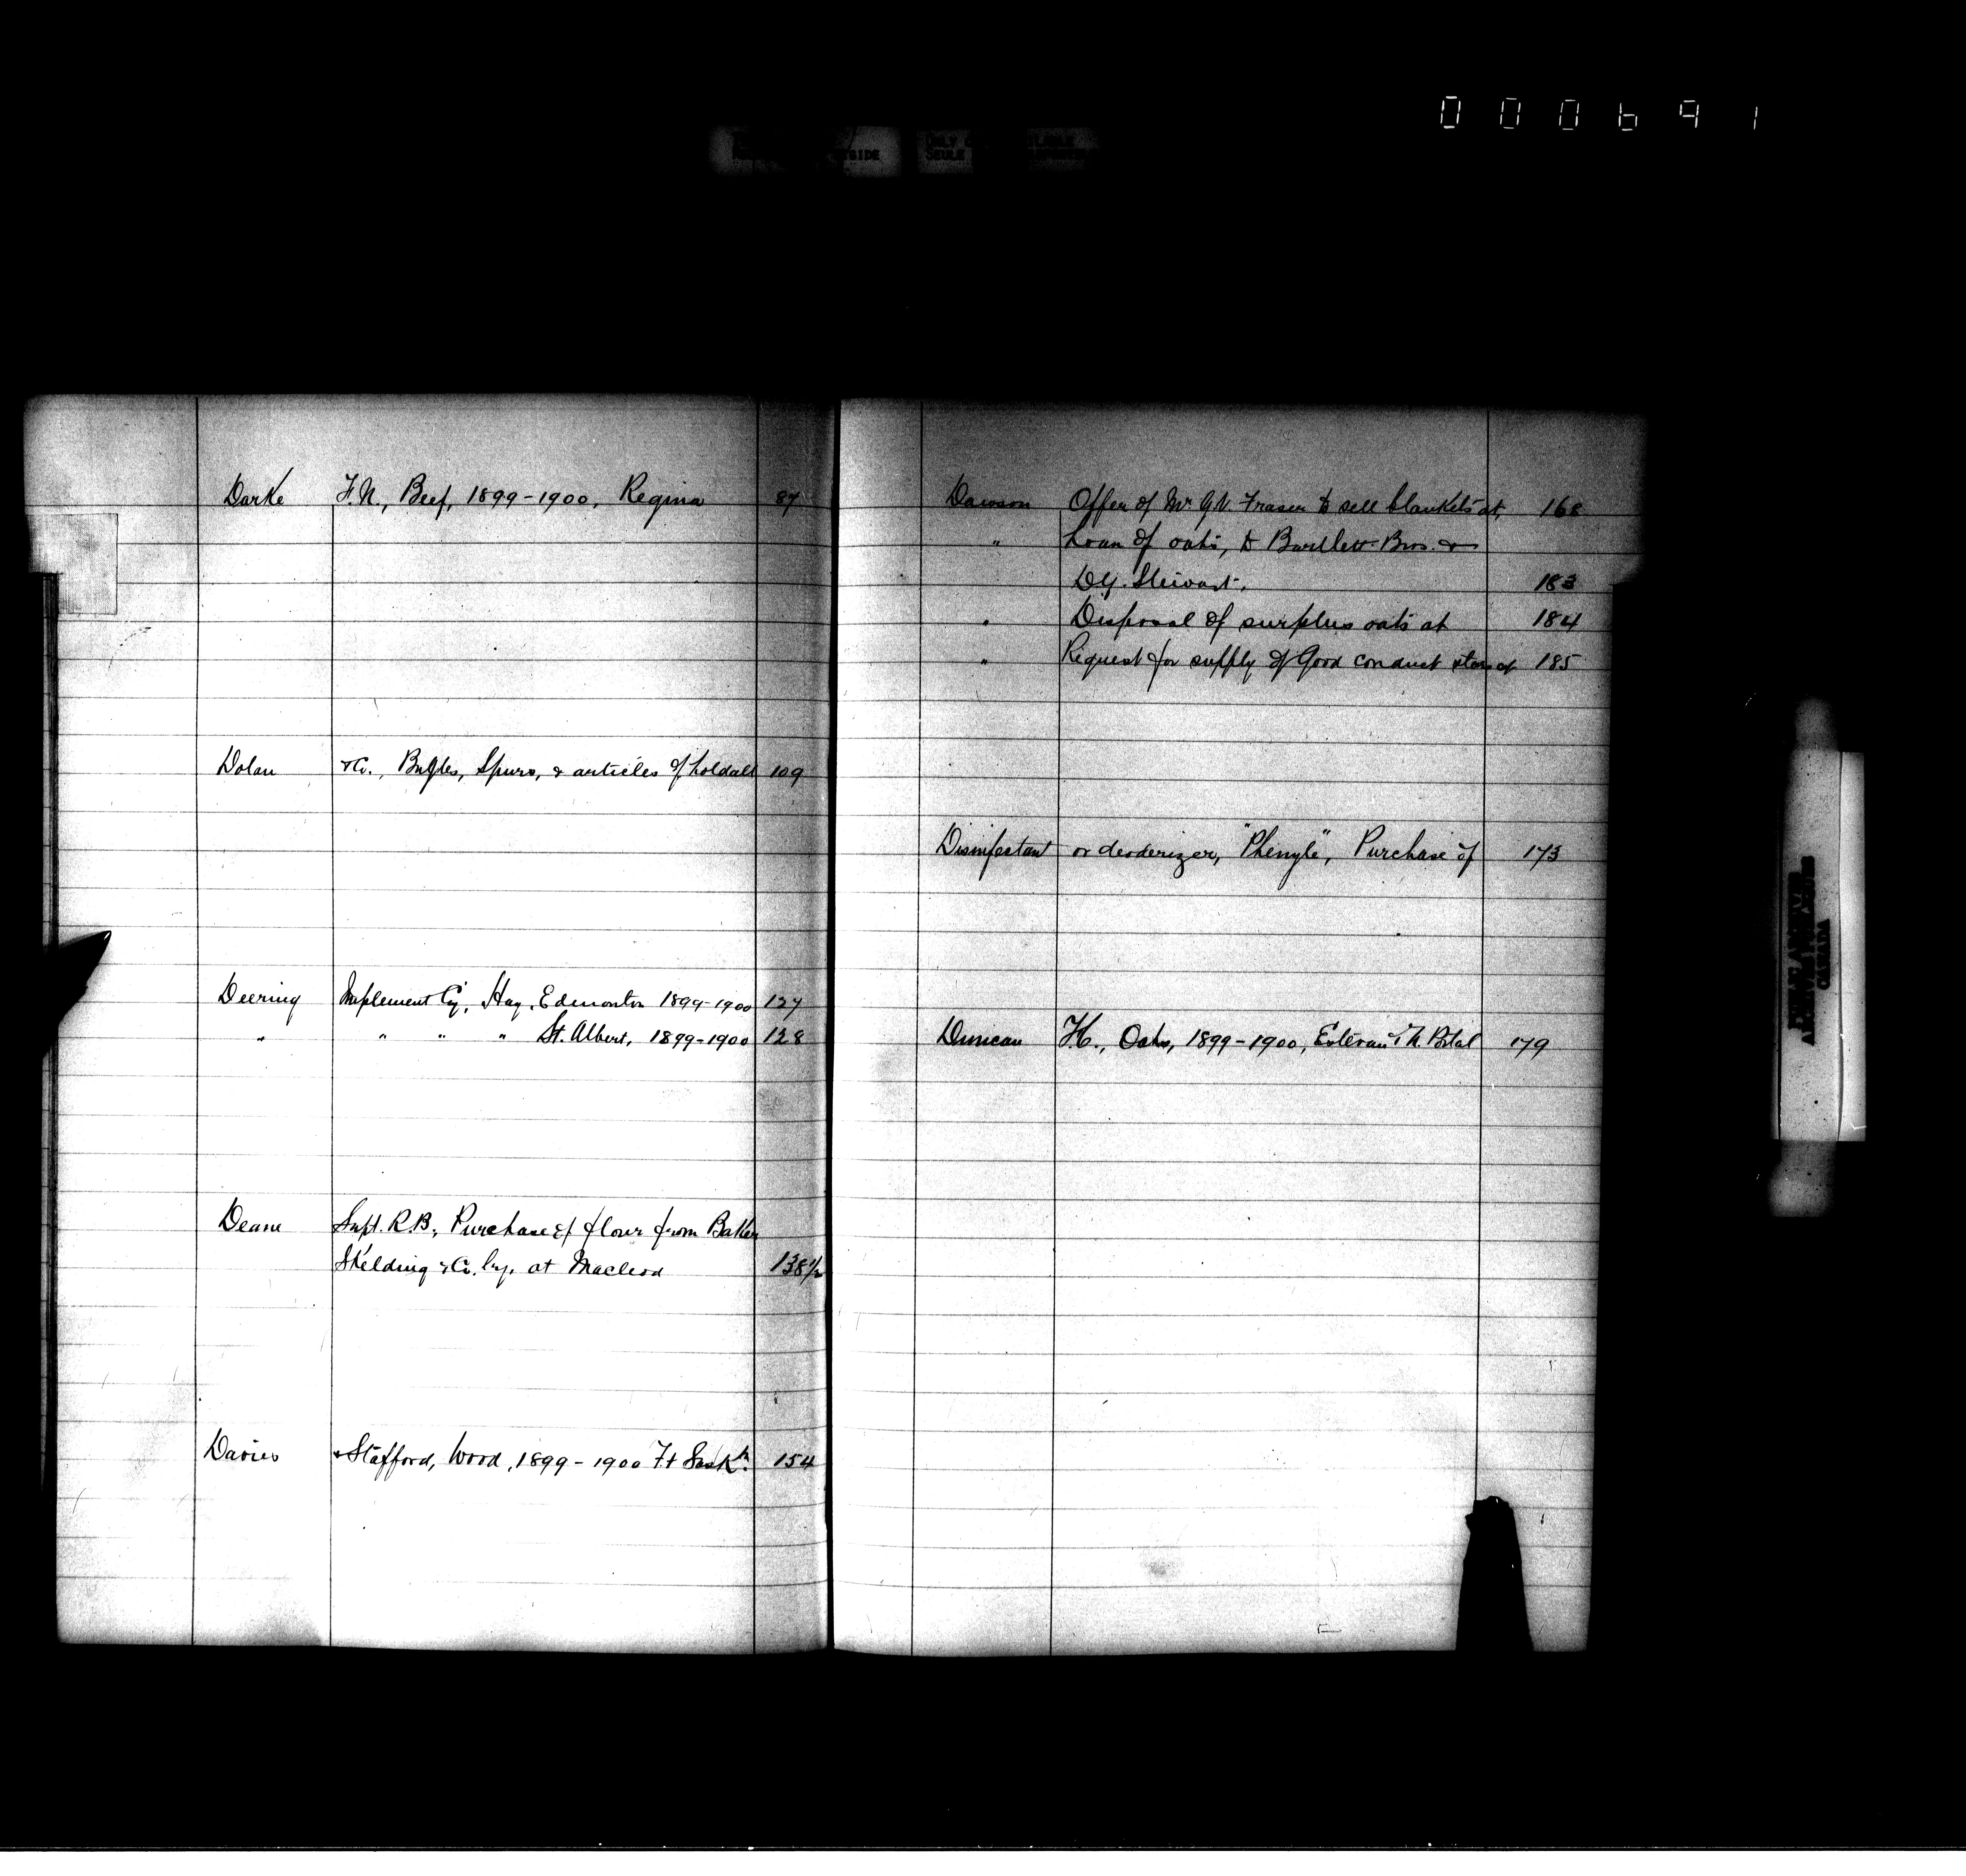 000691
Darke F.N., Beef, 1899-1900, Regina 87
Dolan & Co., Bugles, Spurs, & articles of holdall 109
Deering Implement Cy, Hay, Edmonton 1899-1900 127
" " " " St. Albert, 1899-1900 128
Deane Supt. R.B., Purchase of flour from Baker
Skelding & Co. by, at Macleod 138½
Davies & Stafford, Wood, 1899-1900 Ft Saskn. 154
Dawson Offer of Mr Fraser to sell blankets at, 168
" Loan of oats, to Bartlett Bros. &
D.G. Stewart, 183
" Disposal of surplus oats at 184
" Request for supply of Good conduct at 185
Disinfectant or deoderizer, "Phenyle", Purchase of 173
Duncan H., Oats, 1899-1900, Estevan & N. Portal 179